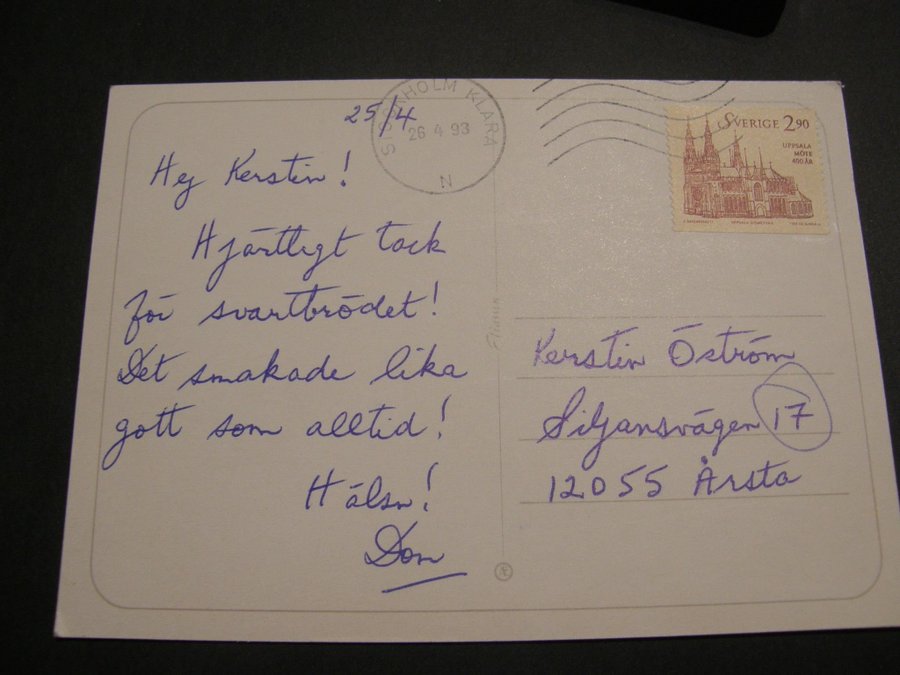 25/4
STOCKHOLM KLARA
26 4 93
N
Hej Kerstin!
Hjärtligt tack
för svartbrödet!
Det smakade lika
gott som alltid!
Hälsn!
Don
SVERIGE 2.90
UPPSALA
MÖTE
400 ÅR
Kerstin Öström
Siljansvägen 17
12055 Årsta